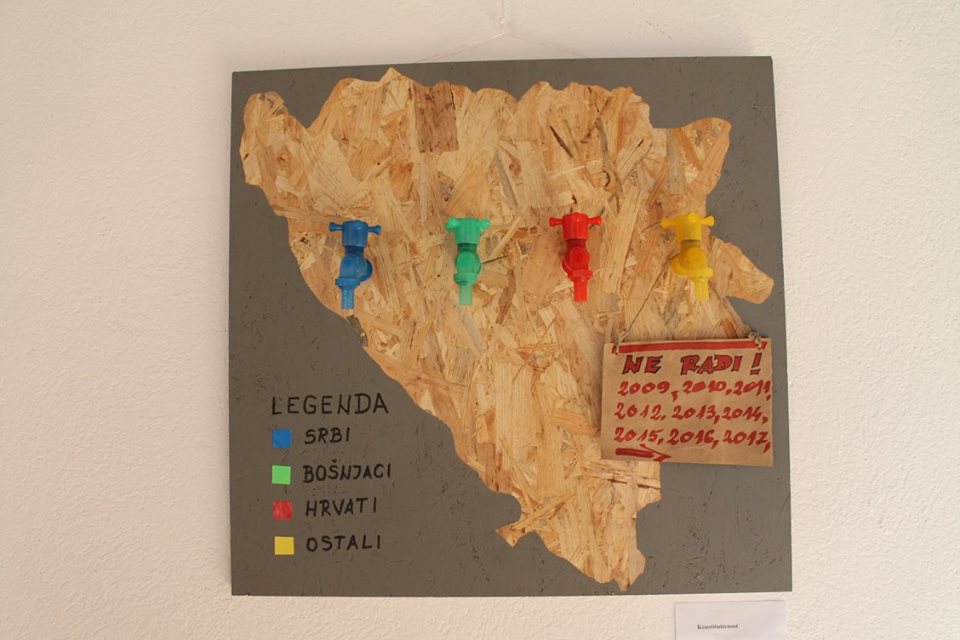 NE RADI!
2009, 2010, 2011,
2012, 2013, 2014,
2015, 2016, 2017,
LEGENDA
SRBI
BOŠNJACI
HRVATI
OSTALI
Konstitutivnost